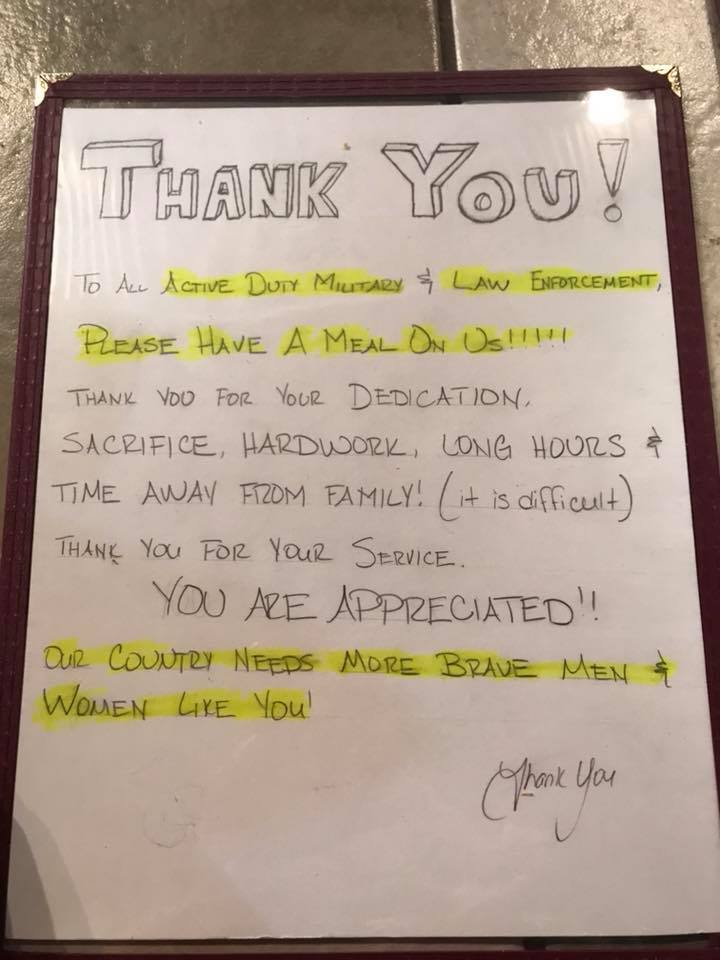 THANK YOU!
TO ALL ACTIVE DUTY MILITARY & LAW ENFORCEMENT,
PLEASE HAVE A MEAL ON US!!!!!
THANK YOU FOR YOUR DEDICATION,
SACRIFICE, HARDWORK, LONG HOURS &
TIME AWAY FROM FAMILY! (it is difficult)
THANK YOU FOR YOUR SERVICE.
YOU ARE APPRECIATED!!
OUR COUNTRY NEEDS MORE BRAVE MEN &
WOMEN LIKE YOU!
Thank You